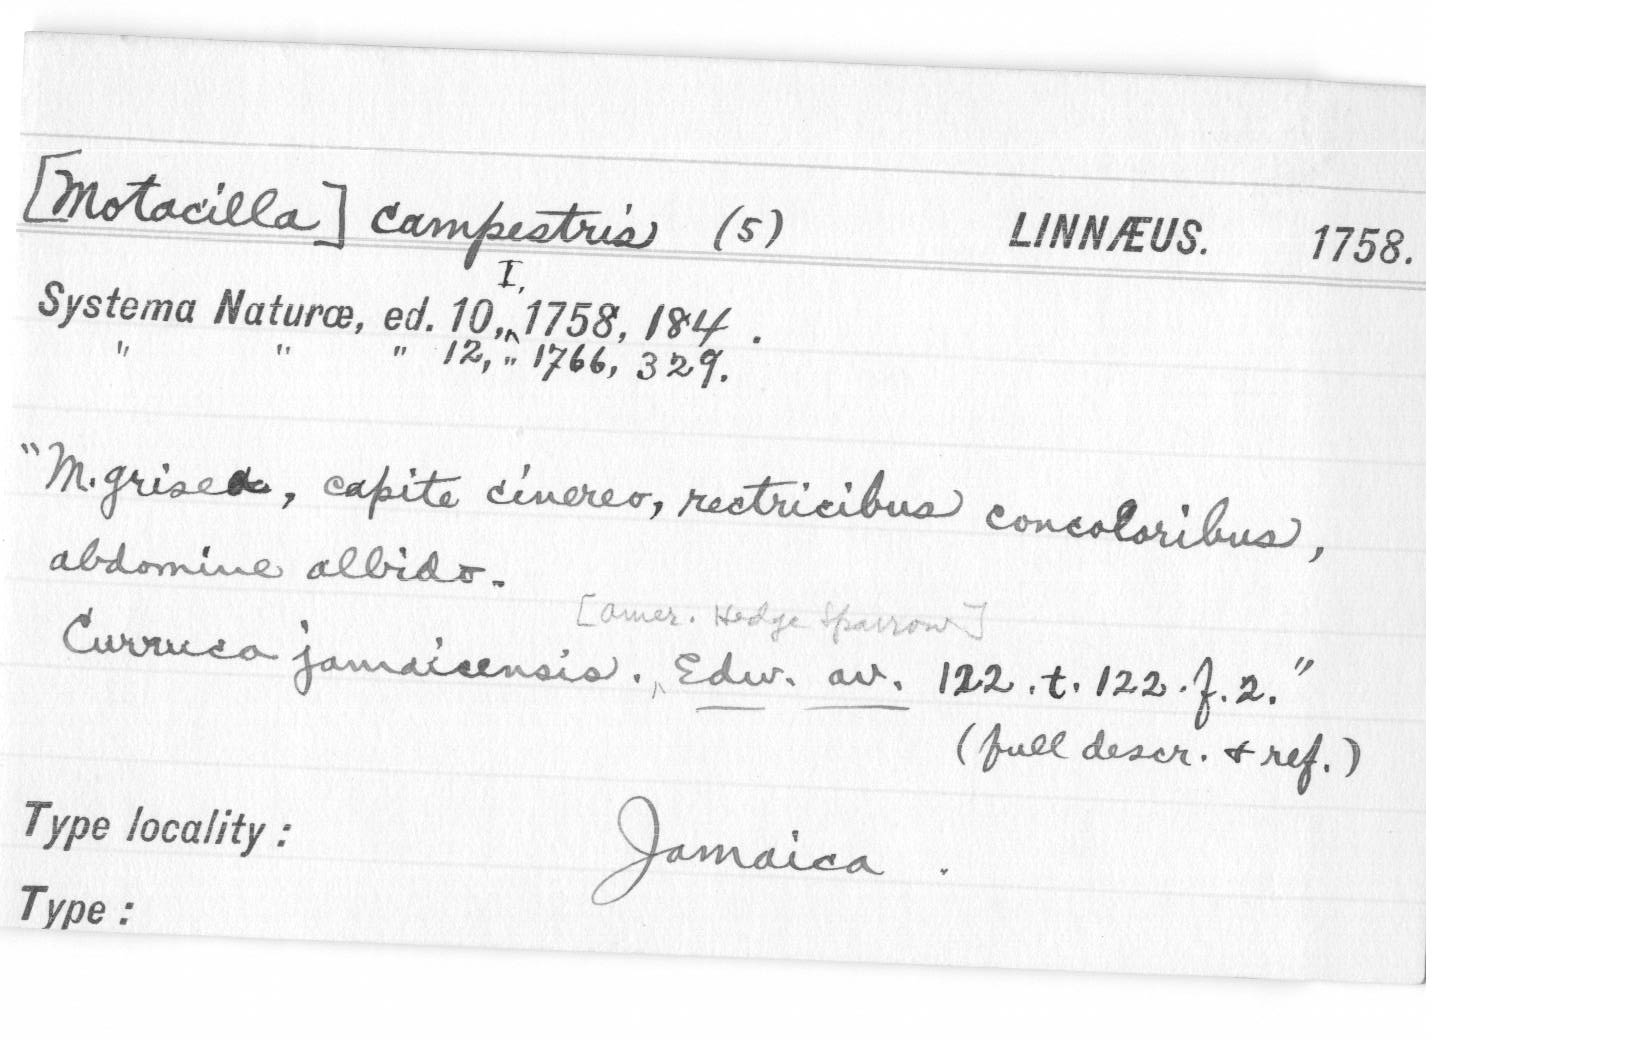 [Motacilla] campestris (5) LINNÆUS. 1758.
I,
Systema Naturæ, ed. 10, 1758, 184.
" " " 12, " 1766, 329.
"M. grisea, capite cinereo, rectricibus concoloribus,
abdomine albido.
[Amer. Hedge Sparrow]
Curruca jamaicensis. Edw. av. 122. t. 122. f. 2."
(full descr. & ref.)
Type locality: Jamaica.
Type: